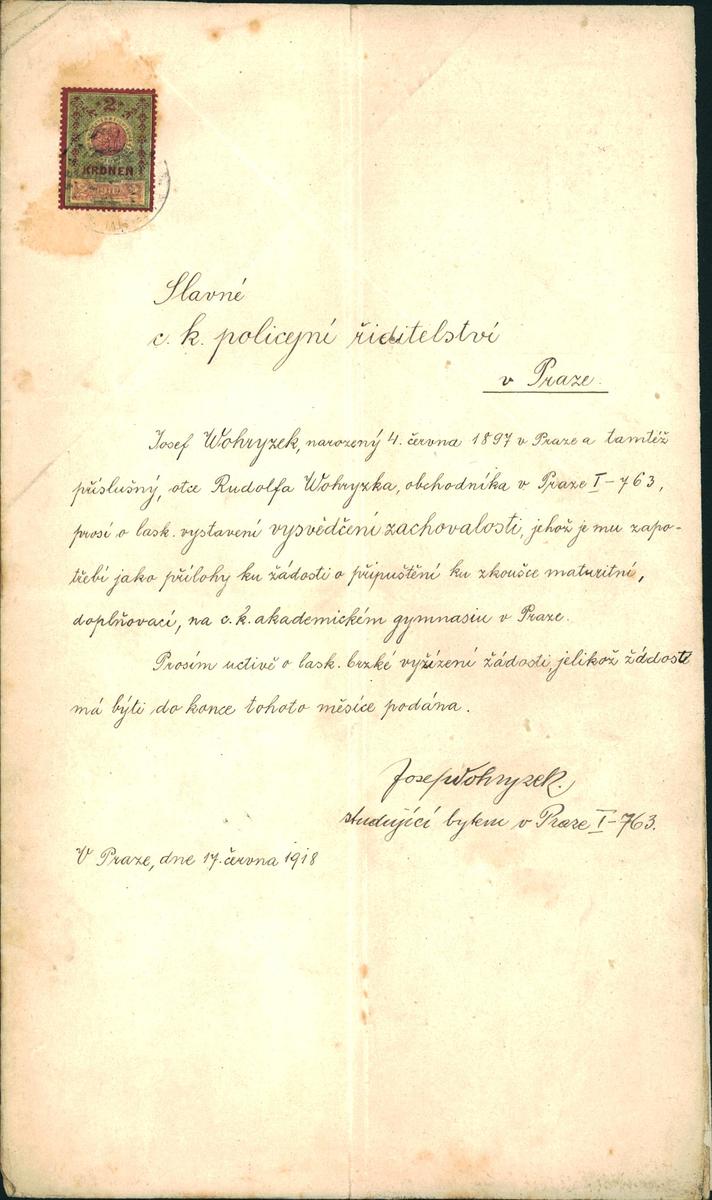 2
KRONEN
1910
Slavné
c. k. policejní řiditelství
v Praze.
Josef Wohryzek, narozený 4. června 1897 v Praze a tamtéž
příslušný, otce Rudolfa Wohryzka, obchodníka v Praze I-763,
prosí o lask. vystavení vysvědčení zachovalosti, jehož je mu zapo-
třebí jako přílohy ku žádosti o připuštění ku zkoušce maturitní,
doplňovací, na c. k. akademickém gymnasiu v Praze.
Prosím uctivě o lask. brzké vyřízení žádosti, jelikož žádost
má býti do konce tohoto měsíce podána.
Josef Wohryzek.
studující bytem v Praze I-763.
V Praze, dne 17. června 1918